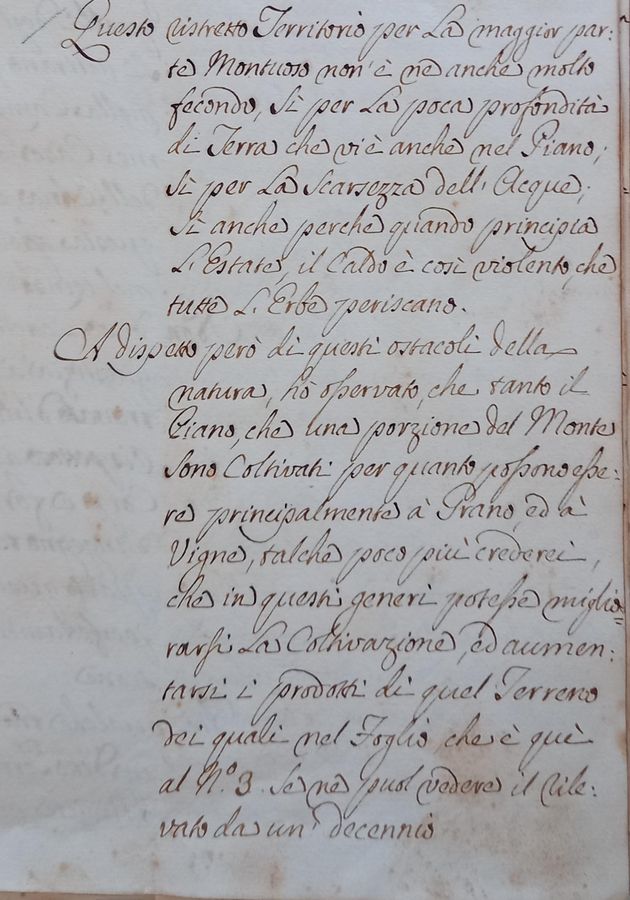 Questo ristretto Territorio per La maggior par:
te Montuoso non' è ne anche molto
fecondo, Si per La poca profondità
di Terra che vi è anche nel Piano;
Si per La Scarsezza dell' Acque;
Si anche perche quando principia
L'Estate, il Caldo è così violento, che
tutte L'Erbe periscano.
A dispetto però di questi ostacoli della
natura, hò osservato, che tanto il
Piano, che una porzione del Monte
sono Coltivati per quanto possono esse:
re principalmente à Grano, ed à
Vigne, talche poco più crederei,
che in questi generi potesse miglio=
rarsi La Coltivazione, ed aumen:
tarsi i prodotti di quel Terreno
dei quali nel Foglio che è quì
al N.º 3. Se ne puol vedere il rile:
vato da un' decennio